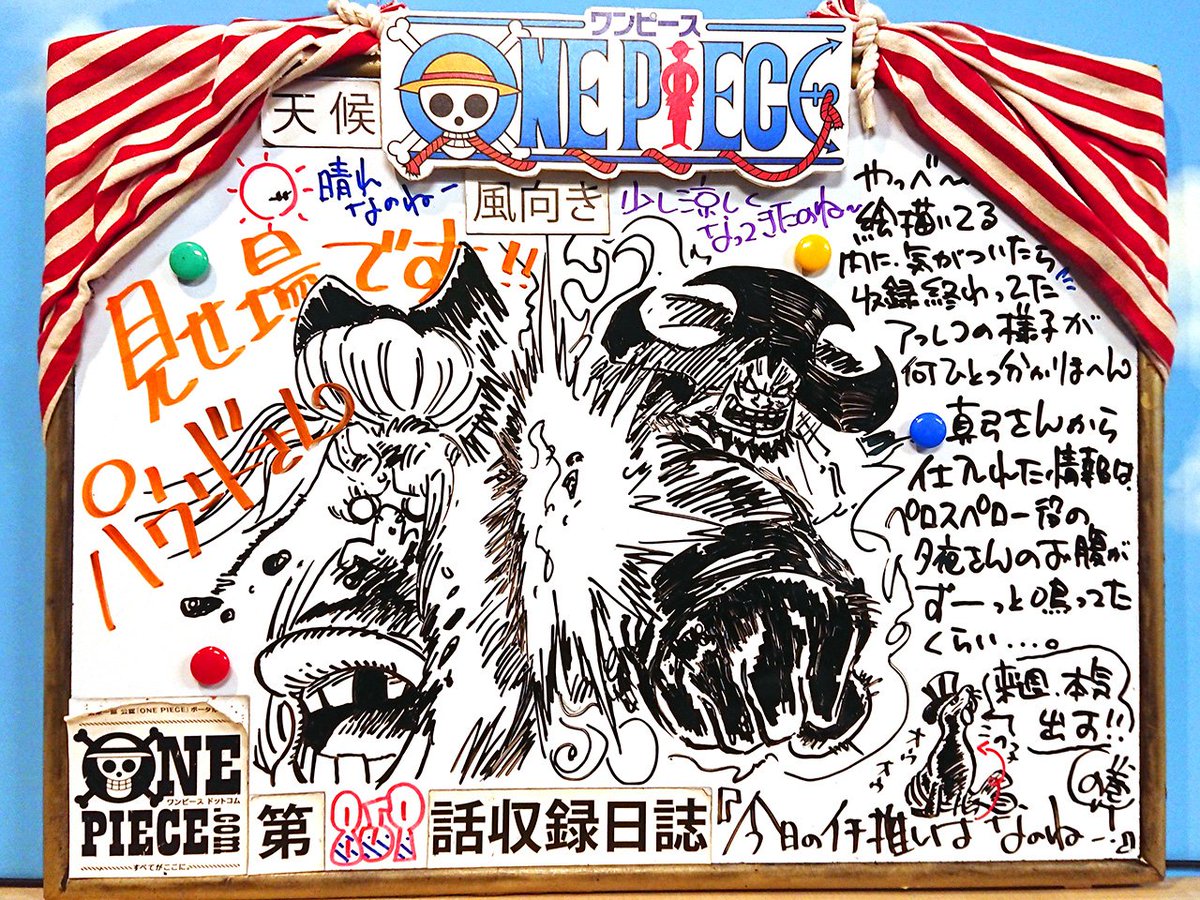 ワンピース
ONE PIECE
天候
晴れ
なのねー
風向き
少し涼しく
なってきたのね〜
見せ場です!!
パウンドさん
やっべ〜
絵描いてる
内に、気がついたら
収録終わってた
アフレコの様子が
何ひとつ分かりまへん
真弓さんから
仕入れた情報は、
ペロスペロー役の
夕夜さんのお腹が
ずーっと鳴ってた
くらい・・・・。
来週、本気
出す!!
の巻
ONE
ワンピース ドットコム
PIECE
.com
すべてがここに
第
話収録日誌
『今日のイチ推しはなのねー!』